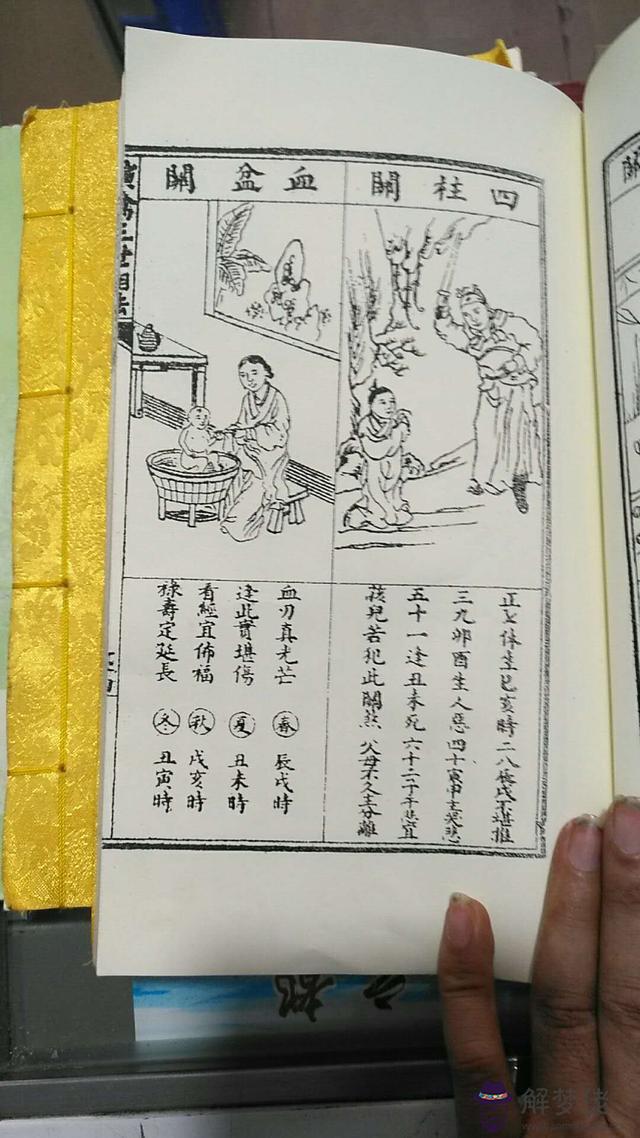 四柱關
正七休生巳亥時二八辰戌不堪推
三九卯酉生人惡四十寅申主哭悲
五十一逢丑未死六十二子午悲宜
孩兒若犯此關煞父母不久主分離
血盆關
血刃真光芒 春 辰戌時
逢此實堪傷 夏 丑未時
看經宜佈福 秋 戌亥時
祿壽定延長 冬 丑寅時
三世相法
關
解梦佬